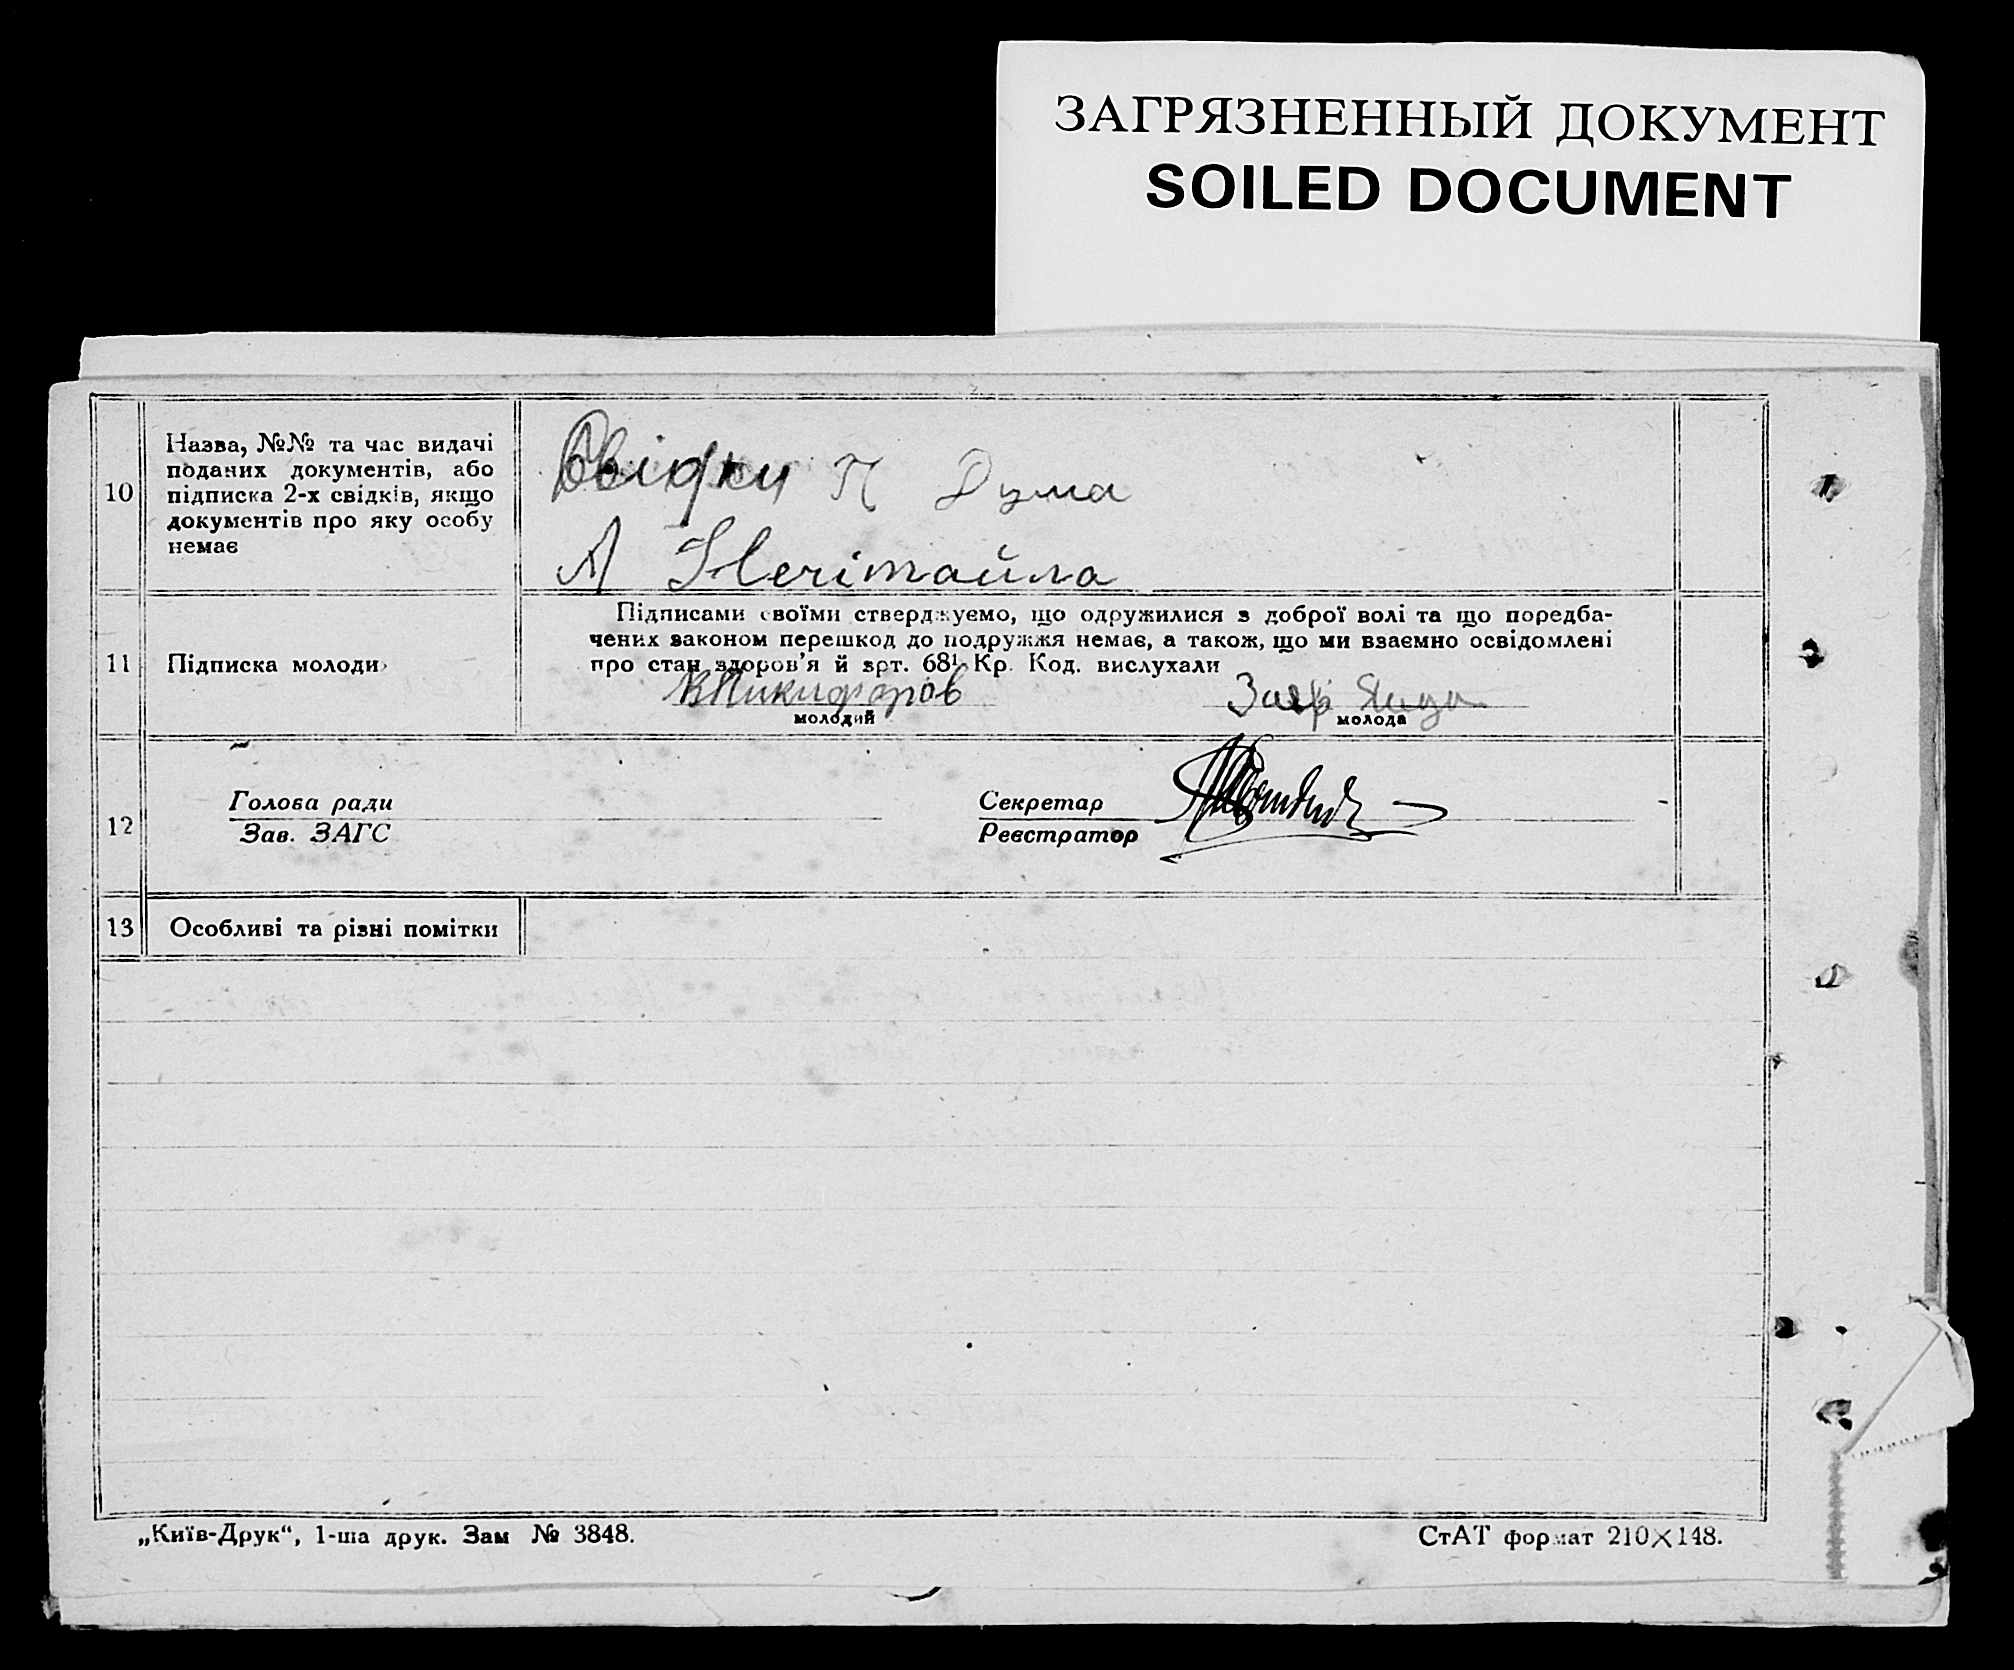 ЗАГРЯЗНЕННЫЙ ДОКУМЕНТ
SOILED DOCUMENT
10
Назва, №№ та час видачі
поданих документів, або
підписка 2-х свідків, якщо
документів про яку особу
немає
Свідки П Дума
А Нечітайла
11
Підписка молоди
Підписами своїми стверджуємо, що одружилися з доброї волі та що поредба-
чених законом перешкод до подружжя немає, а також, що ми взаємно освідомлені
про стан здоров’я й врт. 68¹ Кр. Код. вислухали
В Никифоров
молодий
молода
12
Голова ради
Зав. ЗАГС
Секретар
Реєстратор
13
Особливі та різні помітки
„Київ-Друк“, 1-ша друк. Зам № 3848.
СтАТ формат 210×148.